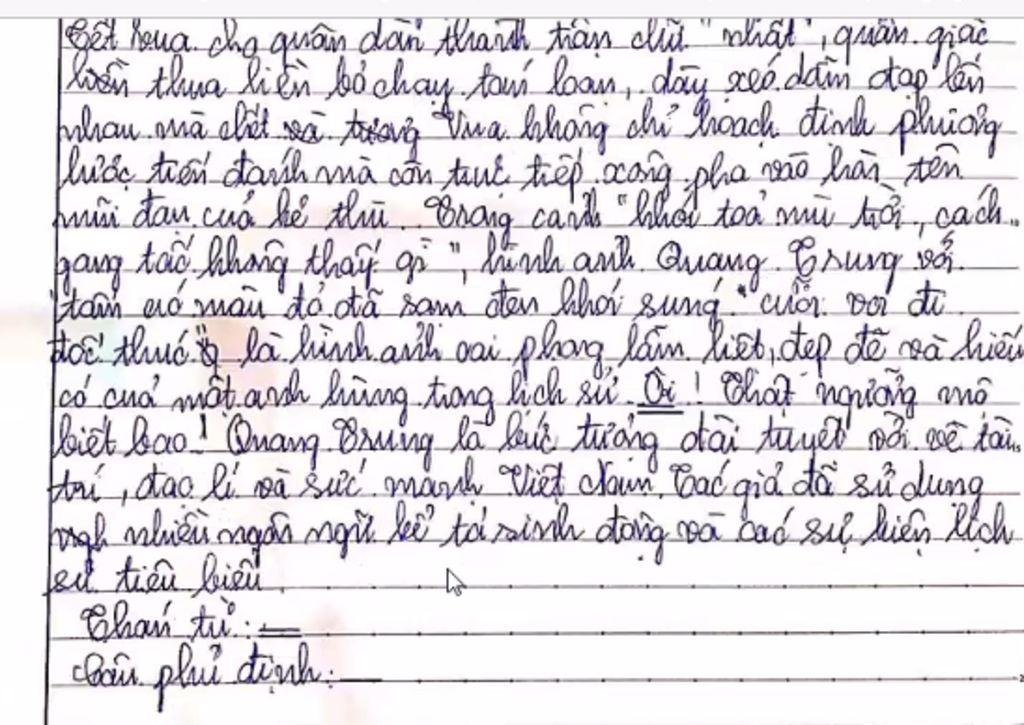 Kết của cho quân dàn thành trận chữ "nhất", quân giặc
liền thua liền bỏ chạy tán loạn, dày xéo dẫm đạp lên
nhau mà chết và tượng Vua không chỉ hoạch định phương
lược tiến đánh mà còn trực tiếp xông pha vào hàn tên
mũi đạn của kẻ thù. Trong cảnh "khói toả mù trời, cách
gang tấc không thấy gì", hình ảnh Quang Trung với
"tấm áo màu đỏ đã sạm đen khói súng" cưỡi voi đi
đốc thúc là hình ảnh oai phong lẫm liệt, đẹp đẽ và hiếm
có của một anh hùng trong lịch sử. Ôi! Thật ngưỡng mộ
biết bao! Quang Trung là bức tượng đài tuyệt vời về tài
trí, đạo lí và sức mạnh Việt Nam. Tác giả đã sử dụng
ngh nhiều ngôn ngữ kể tả sinh động và các sự kiện lịch
sử tiêu biểu.
Thán từ:
Câu phủ định: